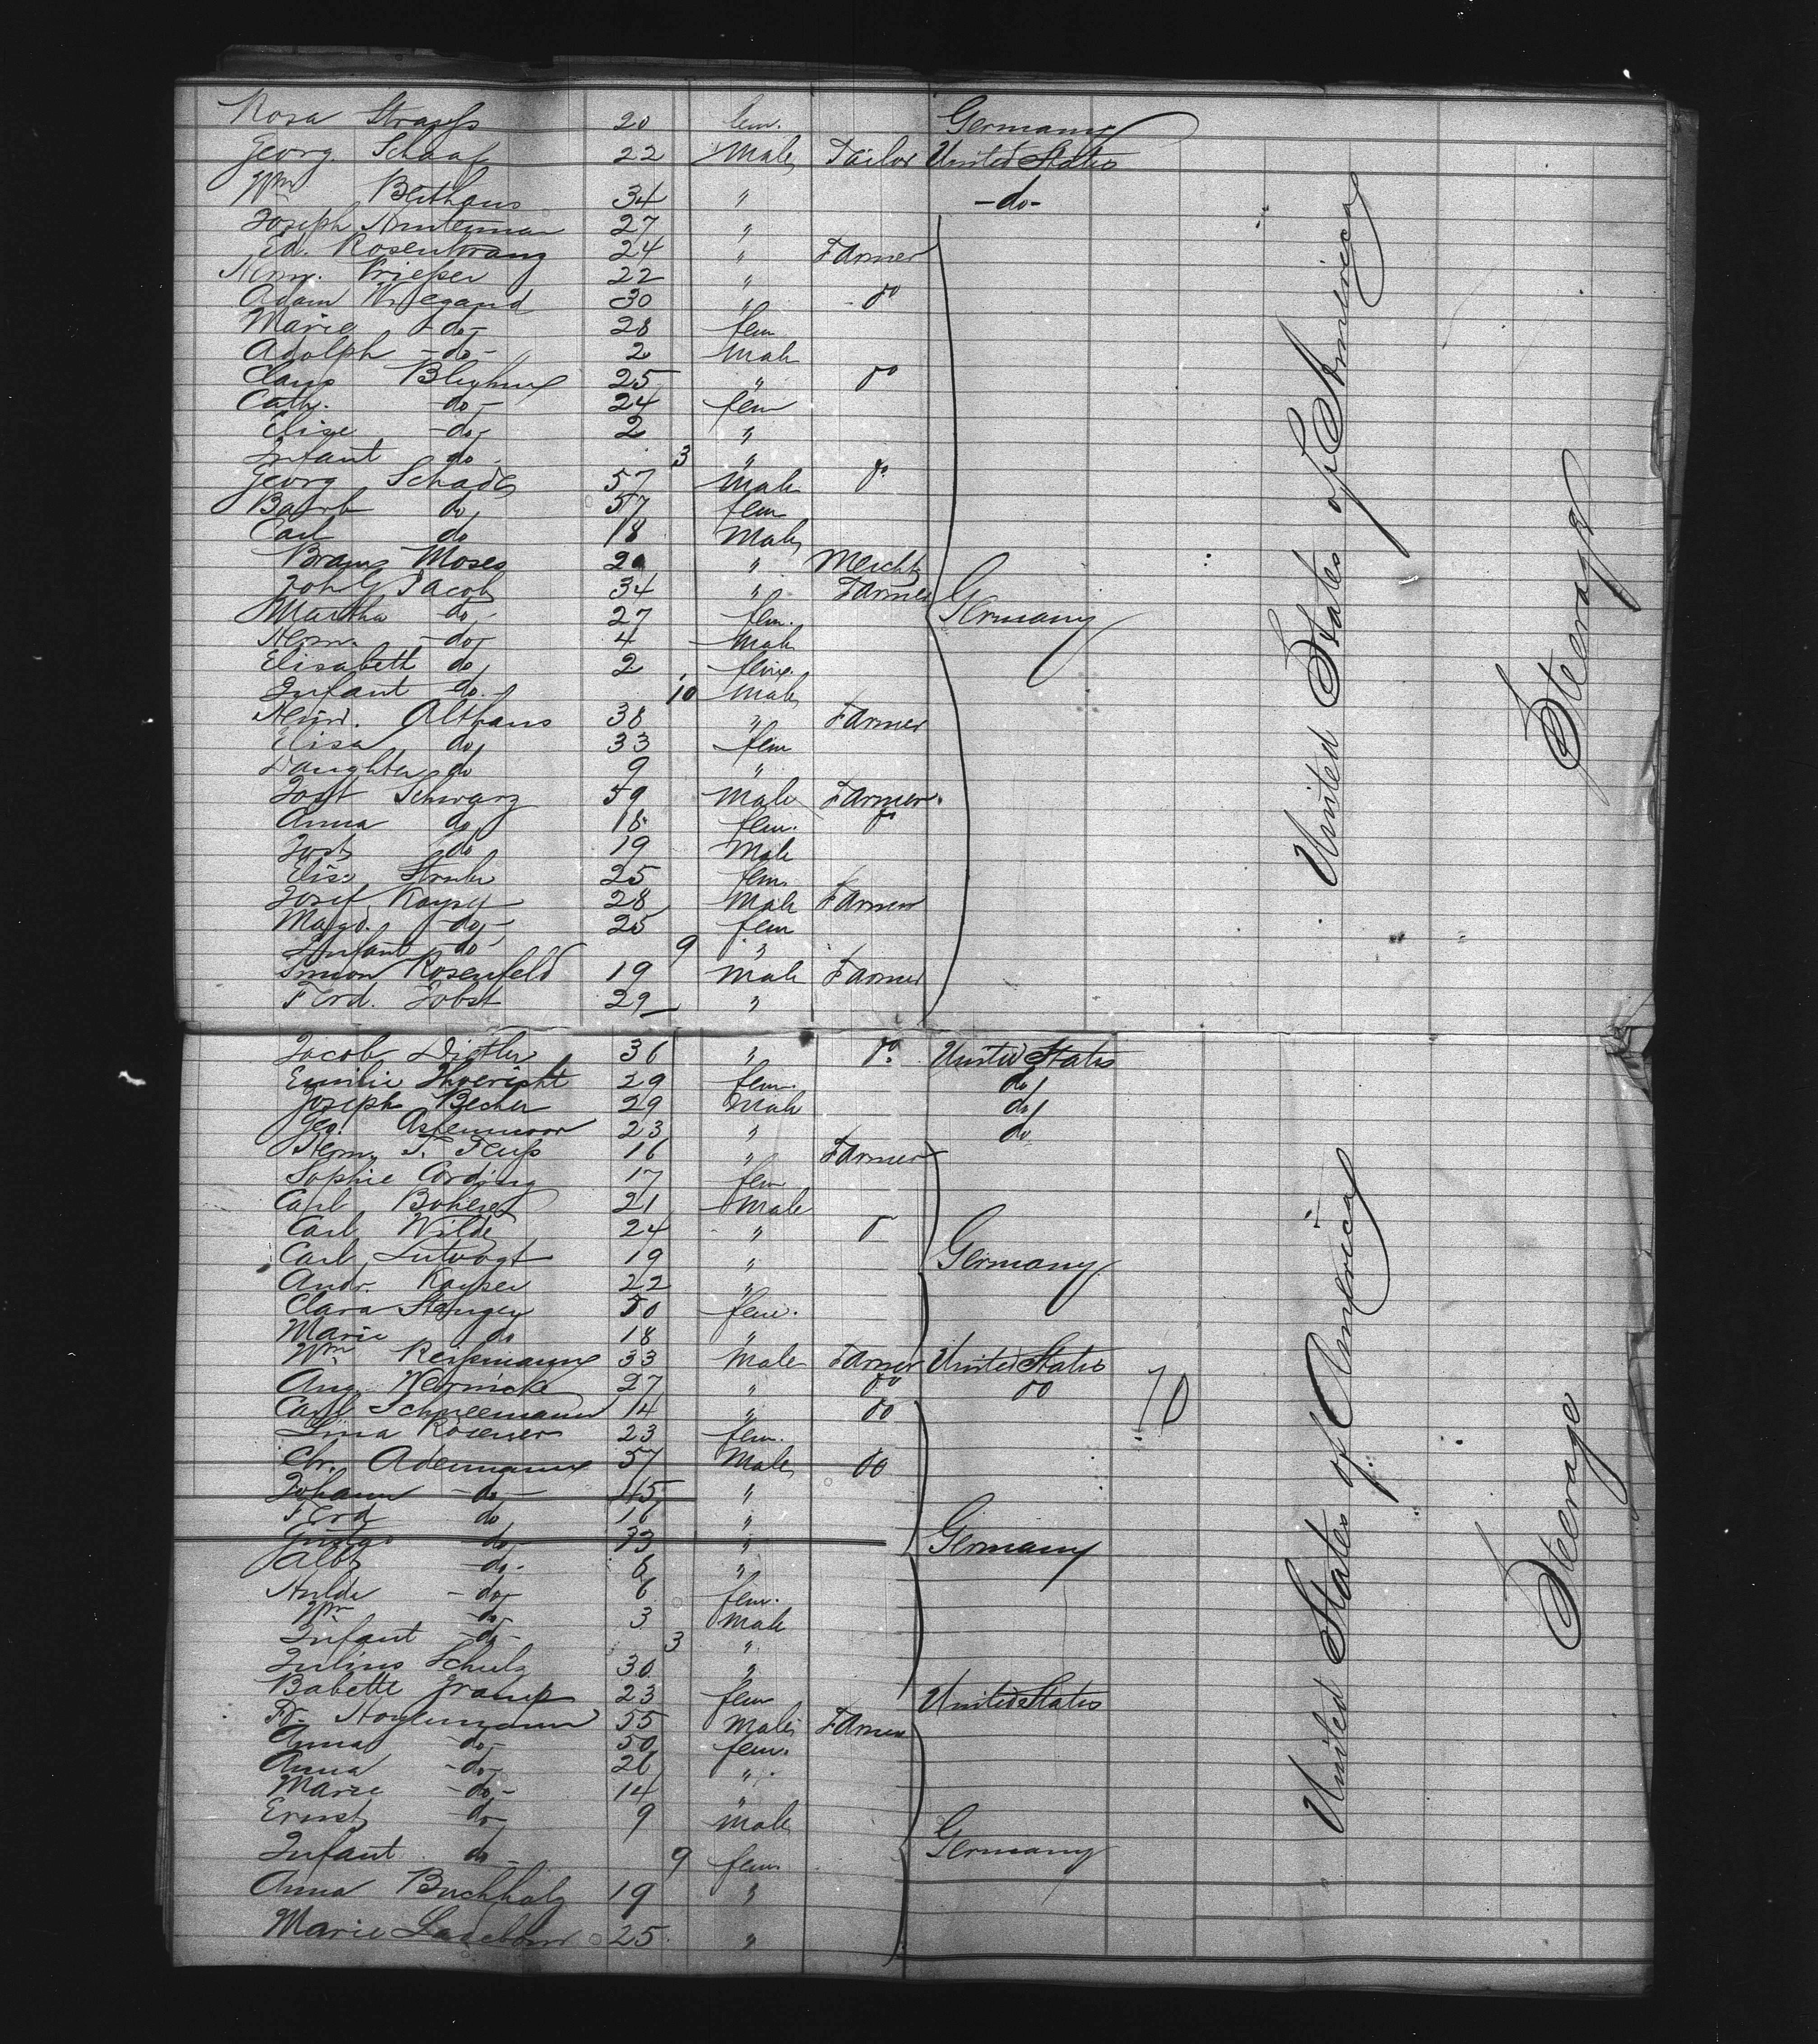 Rosa Strauss 20 fem. Germany
Georg Schaaf 22 Male Tailor United States
Wm Balthaus 34 " -do-
Joseph 27 "
Ed. 24 " Farmer
Herm. Priesser 22 "
Adam Wiegand 30 " do
Marie -do- 28 fem
Adolph -do- 2 Male
Claus 25 " do
Cath. do- 24 fem
Elise -do- 2 "
Infant do 3 "
Georg Schade 57 Male do
Barb do 57 fem
Carl do 18 Male
Moses " Mercht
Joh G Jacob 34 " Farmer Germany
Martha do 27 fem.
Herm. -do- 4 Male
Elisabeth do 2 fem.
Infant do- 10 Male
Heinr. Althaus 38 " Farmer
Elisa do 33 fem
Daughter do 9 "
Jost Schwarz 59 Male Farmer
Anna do 18 fem. do
Jost do 19 Male
Elise 25 fem
Josef Kayser 28 Male Farmer
Magd. -do- 25 fem
Infant do 9 "
Simon Rosenfeld 19 Male Farmer
Ferd. Jobst 29 "
United States of America
Steerage
Jacob 36 " do United States
Emilie 29 fem. do
Joseph Becher 29 Male do
Geo. 23 " do
Herm. 16 " Farmer
Sophie Cording 17 fem
Carl 21 Male
Carl Wilde 24 "
Carl Lutvogt 19 " Germany
Andr. Kayser 22 "
Clara Stenger 50 fem.
Marie do 18 "
Wm Reissmann 33 Male Farmer United States
Aug. Wernicke 27 " do do
Carl Schneemann 14 " do
Lina 23 fem.
Chr. Ademann 57 Male do
Johann -do- 45 "
Ferd do 16 "
do "
Germany
Alb. -do- 8 "
Hulda -do- 6 fem.
Wm -do- 3 Male
Infant -do- 3 "
Julius Schulz 30 "
Babette 23 fem United States
Fr. 55 Male Farmer
Anna -do- 50 fem.
Anna -do- 26 "
Marie -do- 14 "
Ernst do- 9 Male
Infant do- 9 fem Germany
Anna Buchholz 19 "
Marie 25 "
United States of America
Steerage